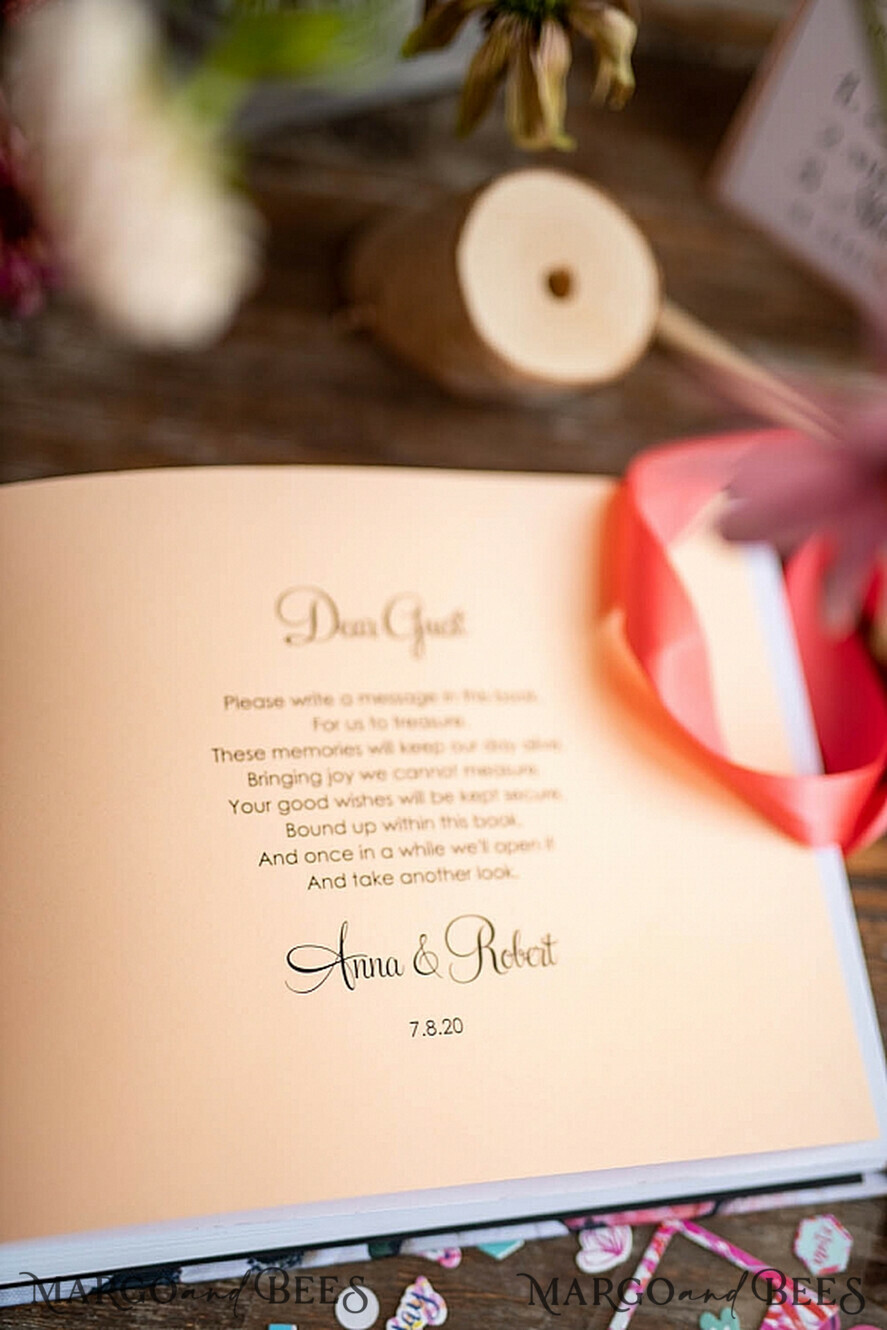 Dear Guest
Please write a message in this book,
For us to treasure.
These memories will keep our day alive,
Bringing joy we cannot measure.
Your good wishes will be kept secure,
Bound up within this book,
And once in a while we'll open it
And take another look.
Anna & Robert
7.8.20
MARGO and BEES MARGO and BEES